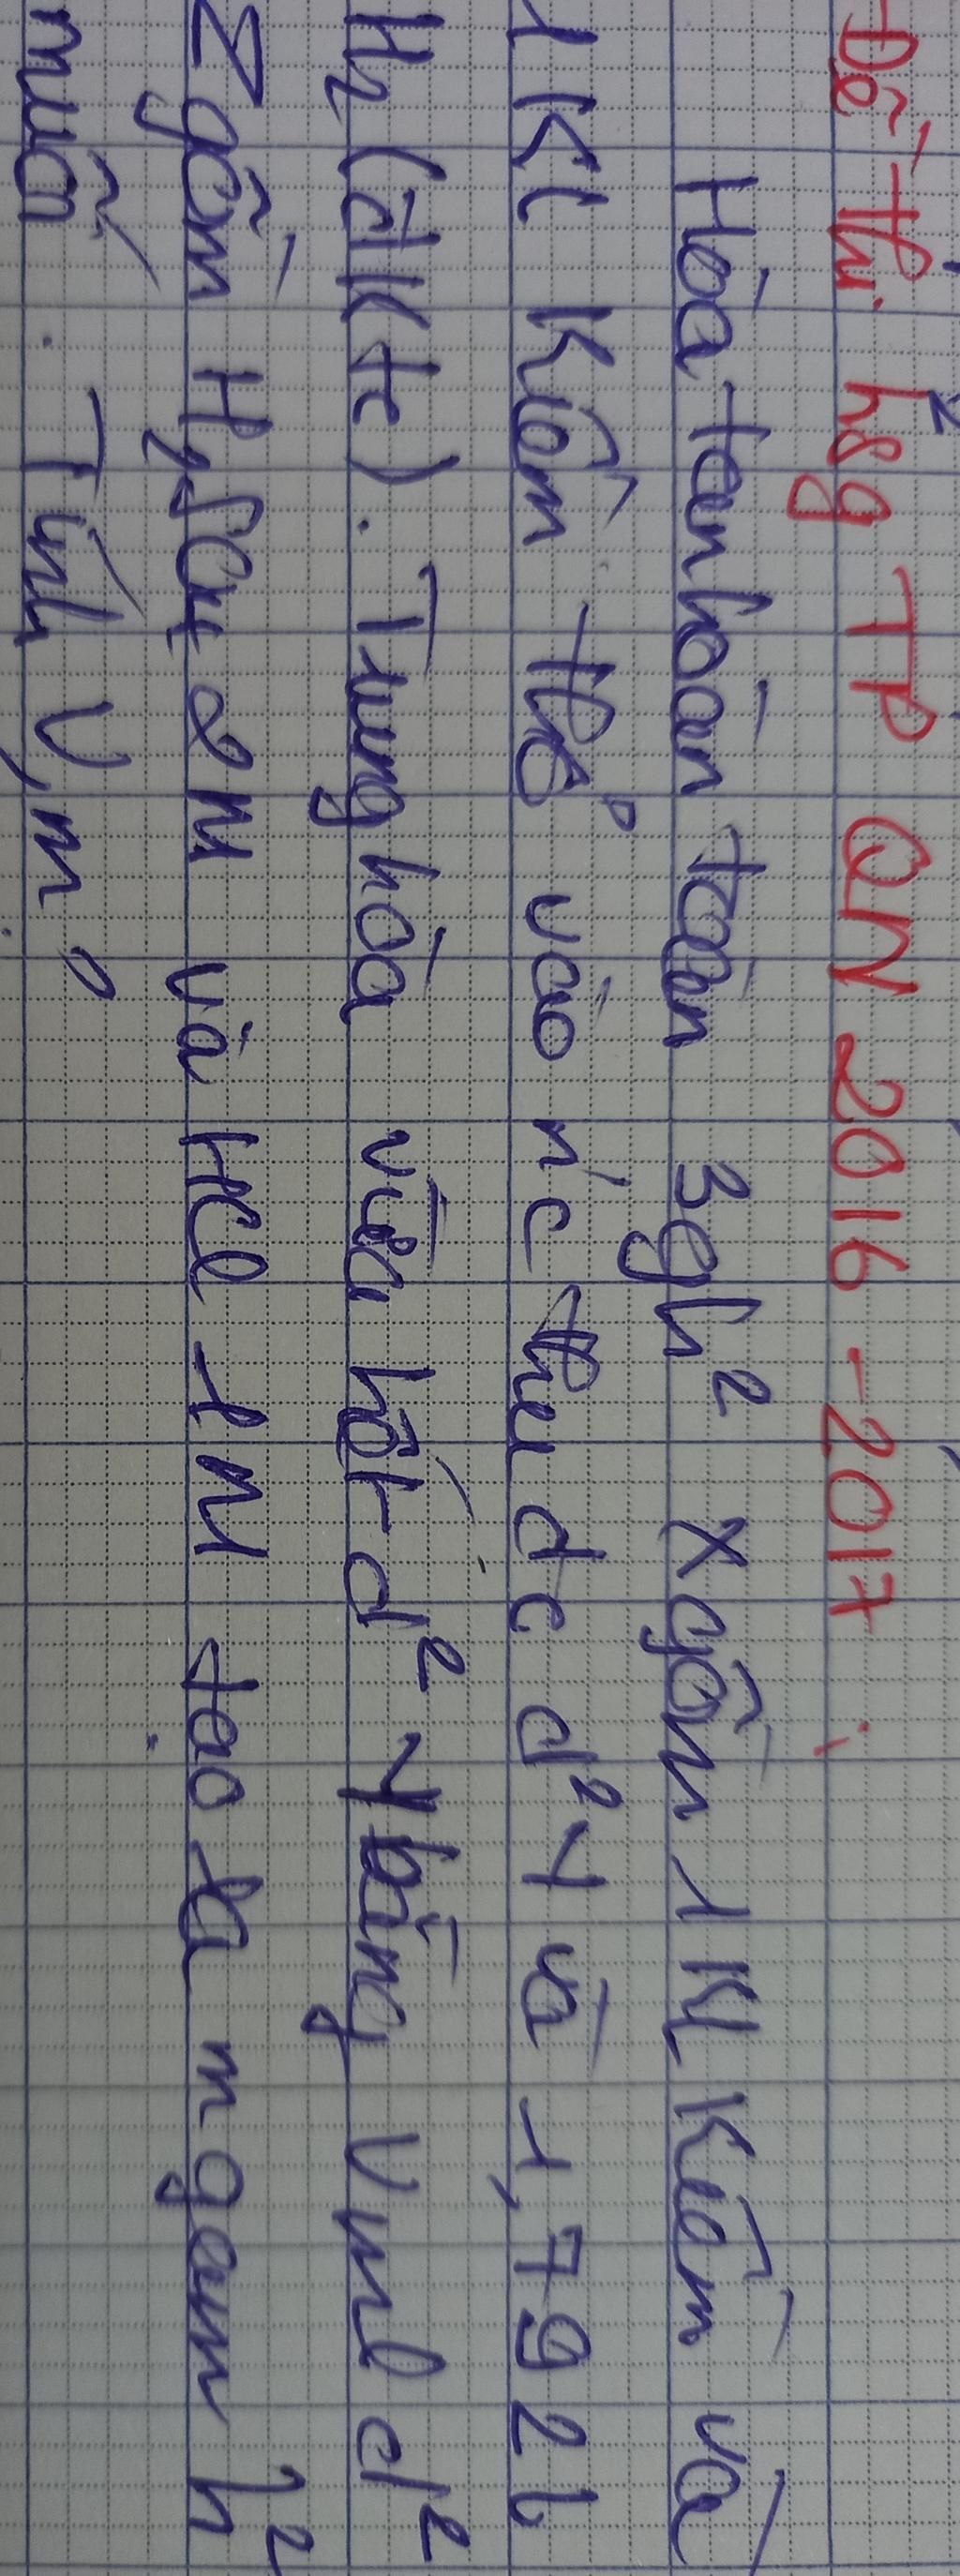 Đề thi hsg TP QN 2016 - 2017:
Hòa tan hoàn toàn 3g h² X gồm 1 KL Kiềm và
1 KL Kiềm thổ vào nc thu đc d² Y và 1,792l
H₂ (đktc). Trung hòa vừa hết d² Y bằng V ml d²
Z gồm H₂SO₄ 2M và HCl 1M tạo ra m gam h²
muối. Tính V, m?